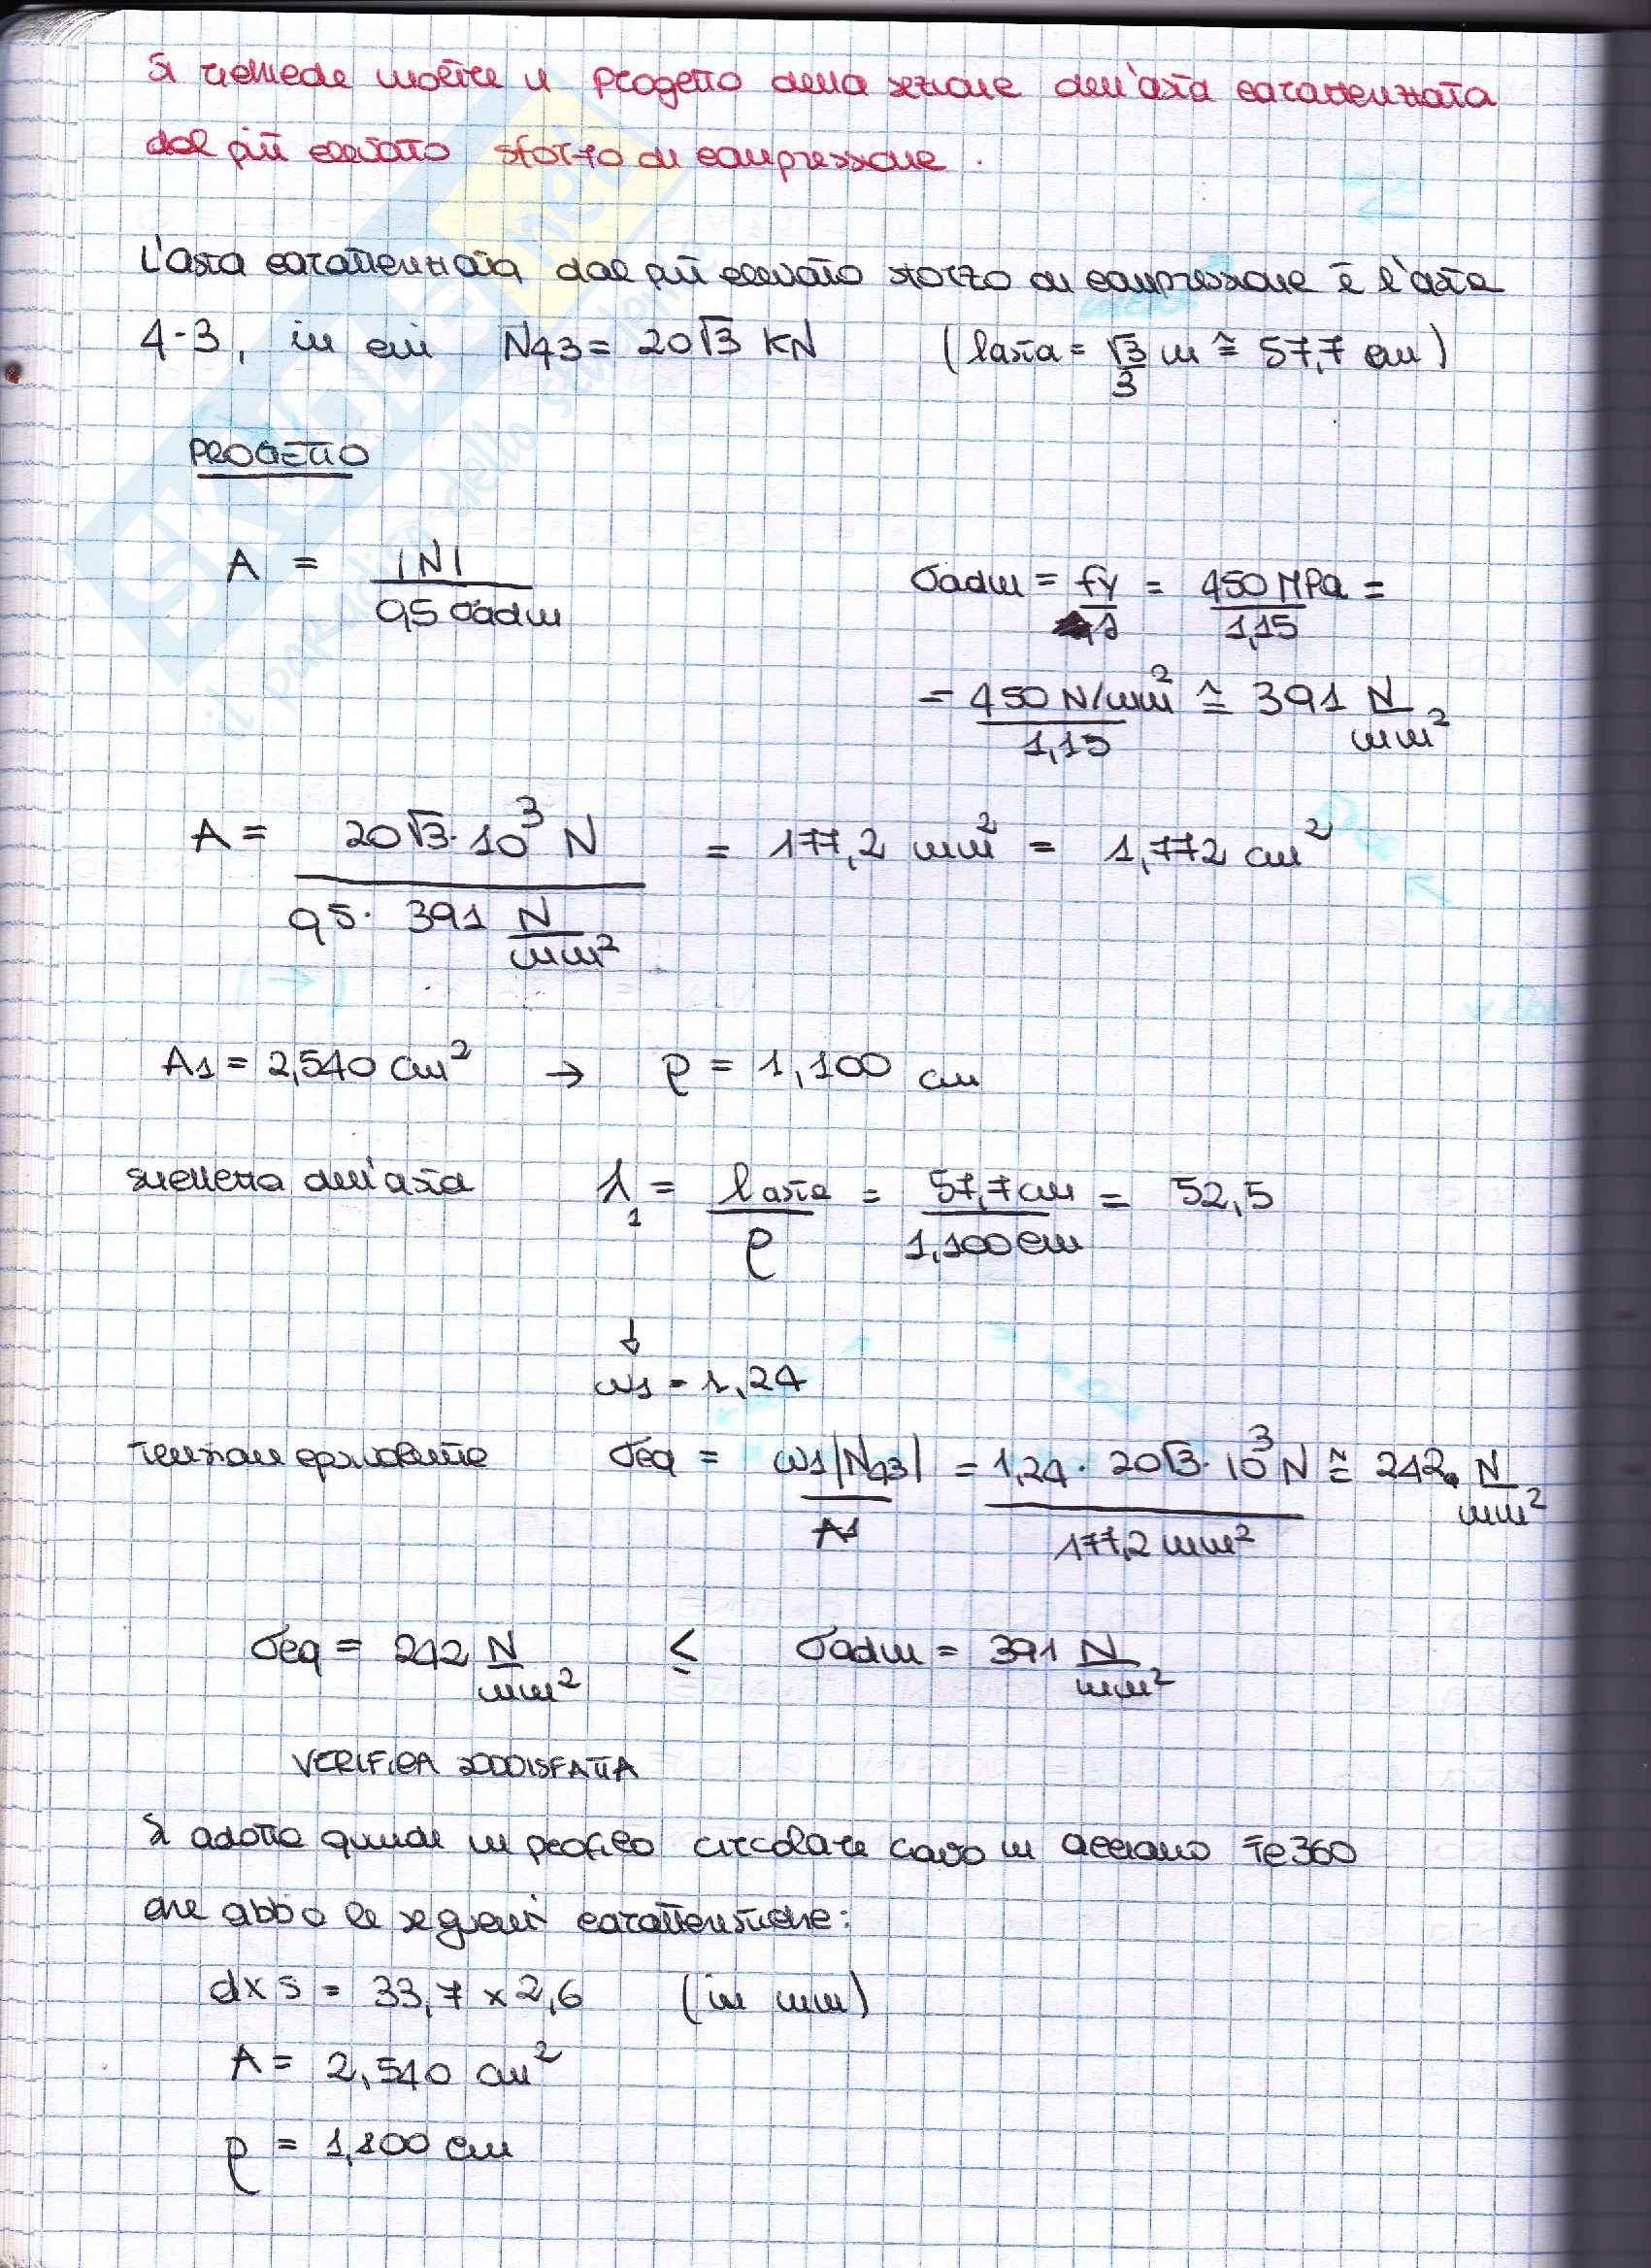 Si richiede inoltre il progetto della sezione dell'asta caratterizzata
dal più elevato sforzo di compressione.
L'asta caratterizzata dal più elevato sforzo di compressione è l'asta
4-3, in cui N43 = 20√3 KN (lasta = √3/3 m ≅ 57,7 cm)
PROGETTO
A = |N| / 0,5 σadm
σadm = fy / = 450 MPa / 1,15 =
= 450 N/mm² / 1,15 ≅ 391 N/mm²
A = 20√3·10³ N / 0,5 · 391 N/mm² = 177,2 mm² = 1,772 cm²
A1 = 2,540 cm² → ρ = 1,100 cm
snellezza dell'asta λ1 = lasta / ρ = 57,7 cm / 1,100 cm = 52,5
↓
ω1 = 1,24
tensione equivalente σeq = ω1|N43| / A1 = 1,24 · 20√3 · 10³ N / 177,2 mm² ≅ 242 N/mm²
σeq = 242 N/mm² ≤ σadm = 391 N/mm²
VERIFICA SODDISFATTA
Si adotta quindi un profilo circolare cavo in acciaio Fe360
che abbia le seguenti caratteristiche:
d x s = 33,7 x 2,6 (in mm)
A = 2,540 cm²
ρ = 1,100 cm
SKUOLA.net
il paradiso dello studente